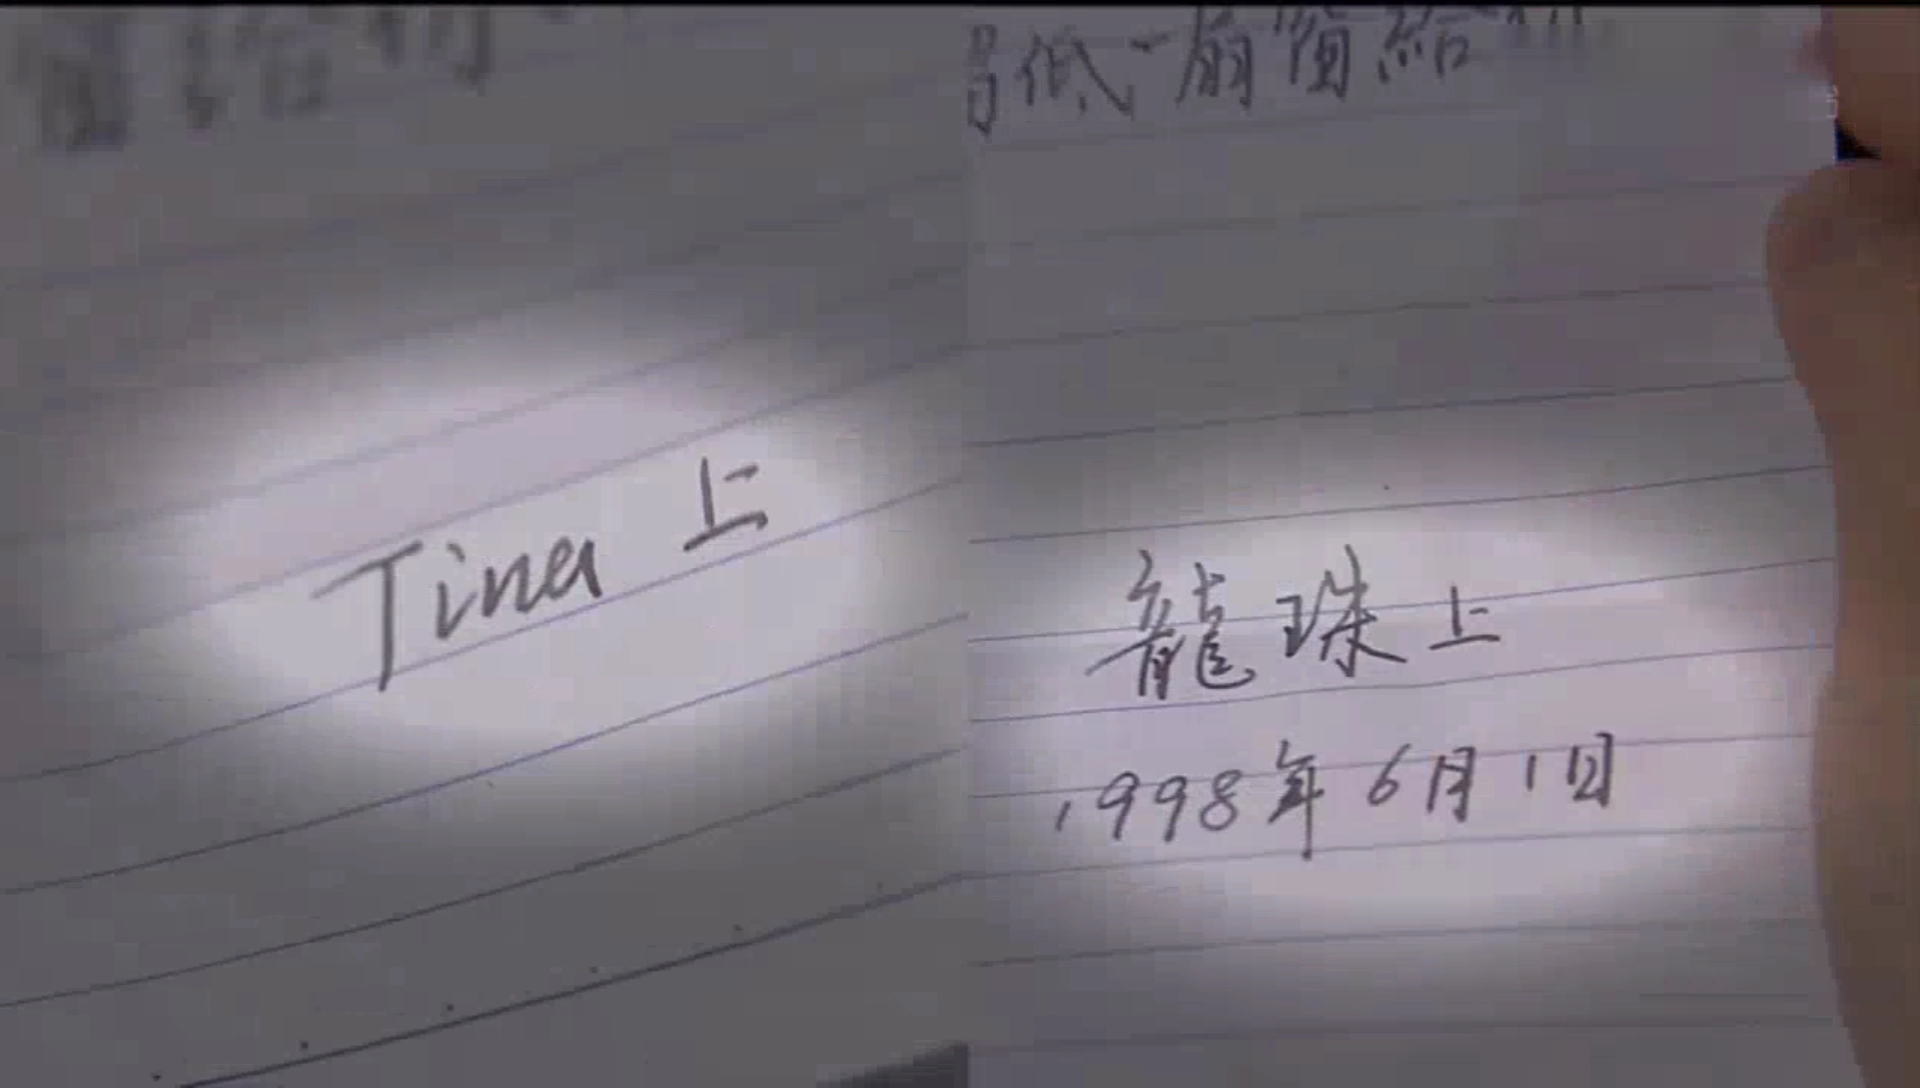 Tina 上
低一扇窗給
龍珠上
1998年6月1日